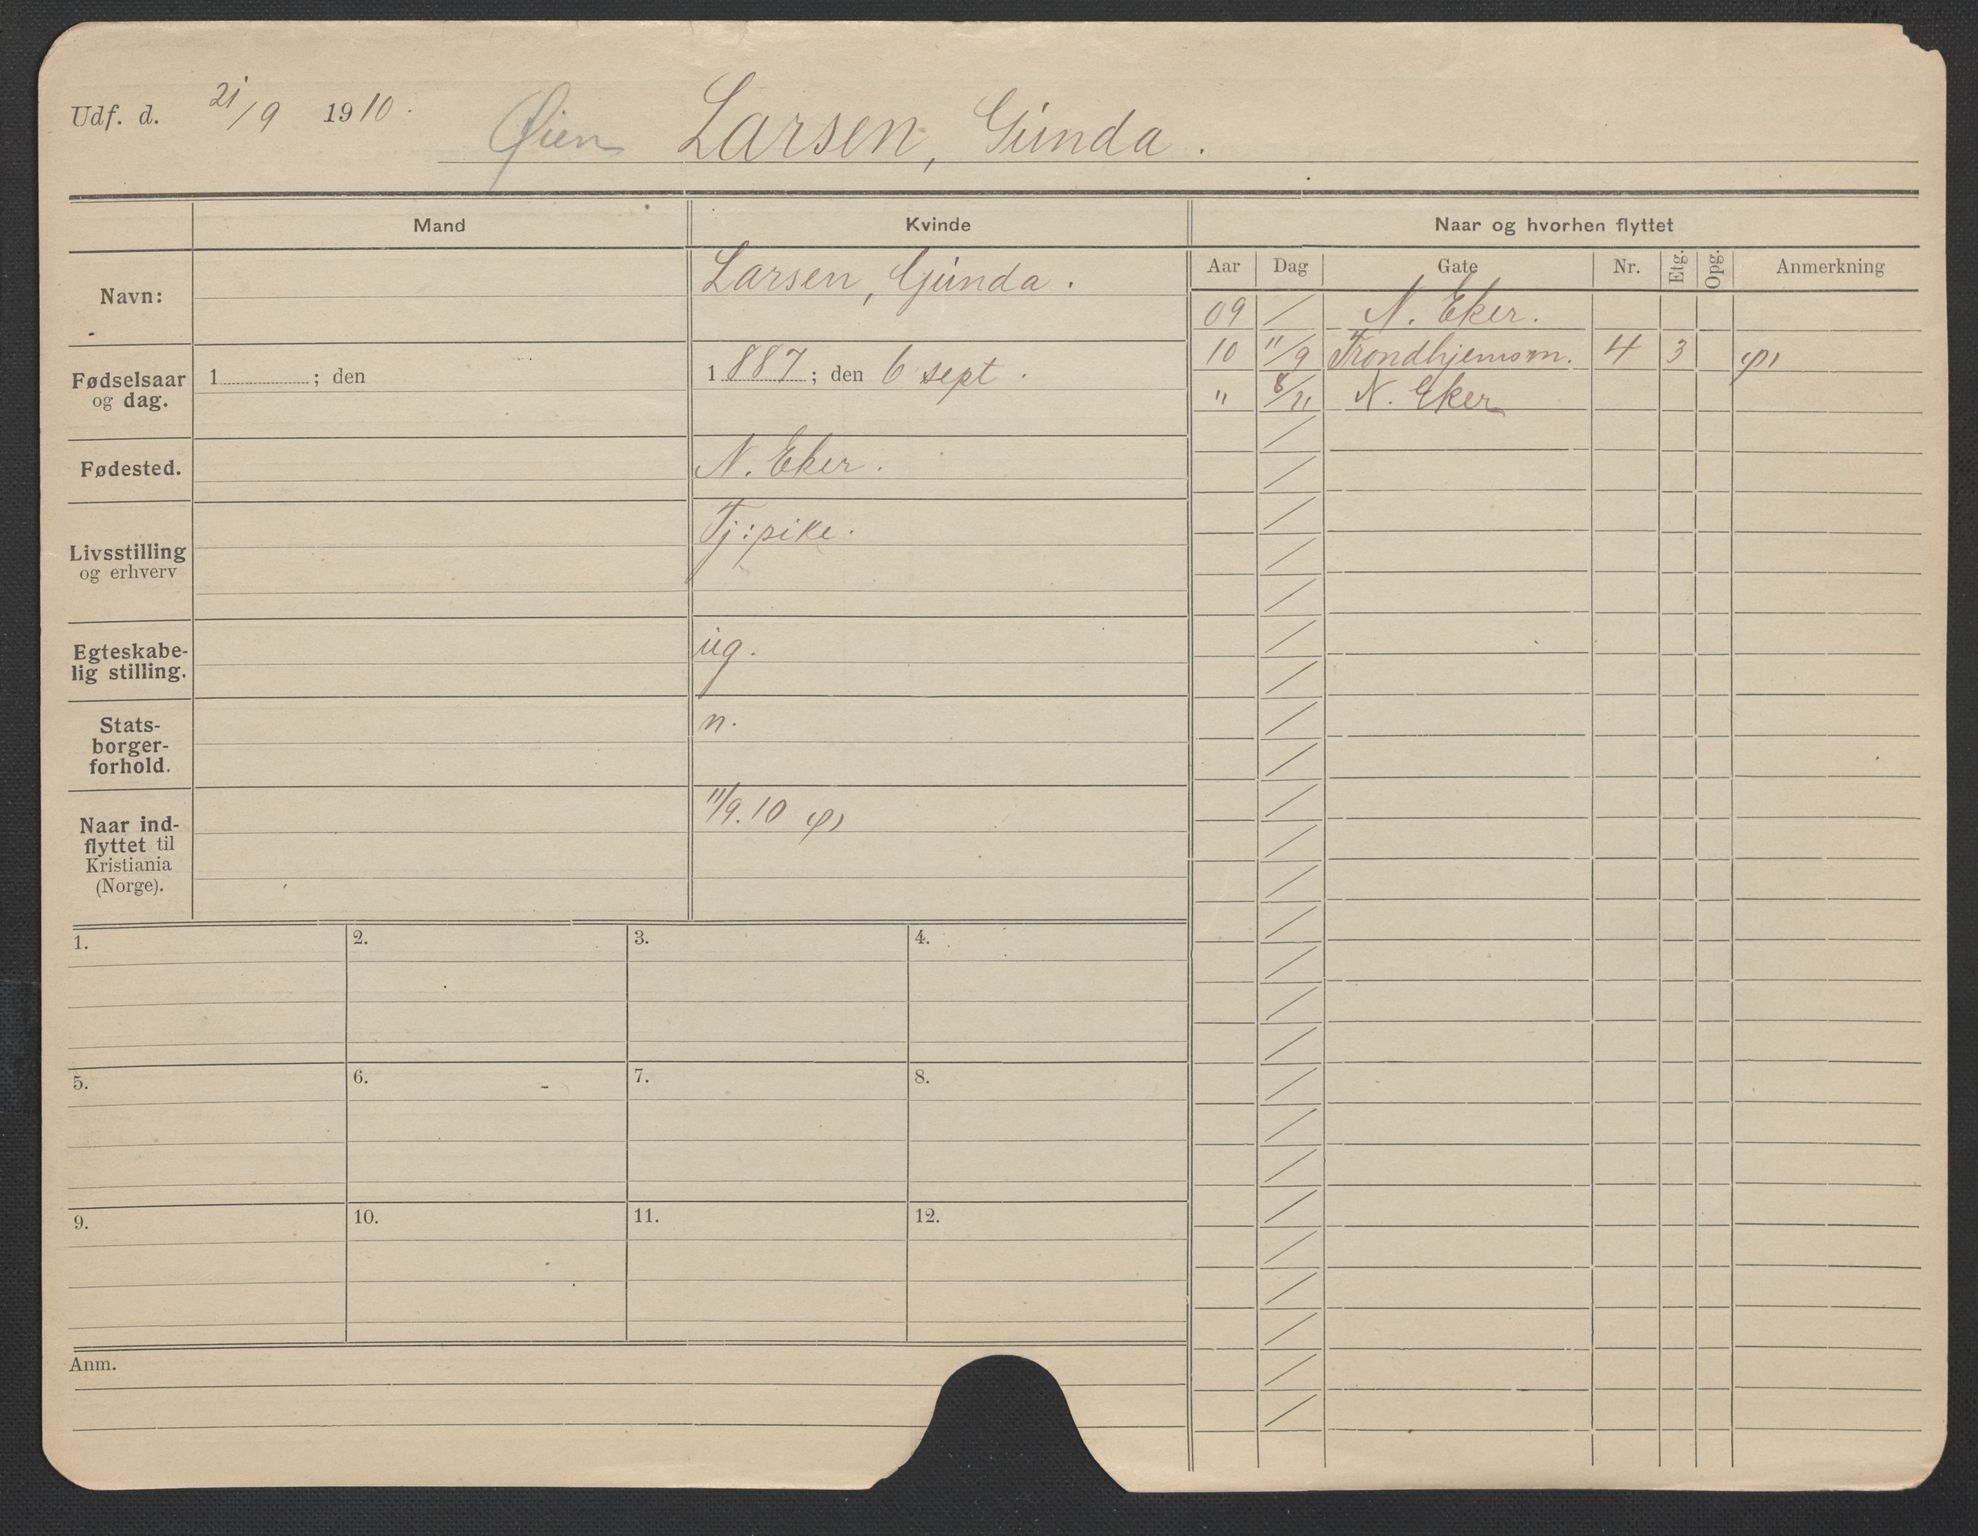 Udf. d. 21/9 1910.
Øien Larsen, Gunda.
Mand
Kvinde
Naar og hvorhen flyttet
Navn:
Larsen, Gunda.
Fødselsaar og dag.
1 ; den
1887; den 6 sept.
Fødested.
N. Eker.
Livsstilling og erhverv
Tj:pike.
Egteskabe-
lig stilling.
ug.
Stats-
borger-
forhold.
n.
Naar ind-
flyttet til
Kristiania
(Norge).
11/9.10
Aar Dag Gate Nr. Etg. Opg. Anmerkning
09 / N. Eker.
10 11/9 Trondhjemsvn. 4 3
" 8/11 N. Eker
1. 2. 3. 4.
5. 6. 7. 8.
9. 10. 11. 12.
Anm.